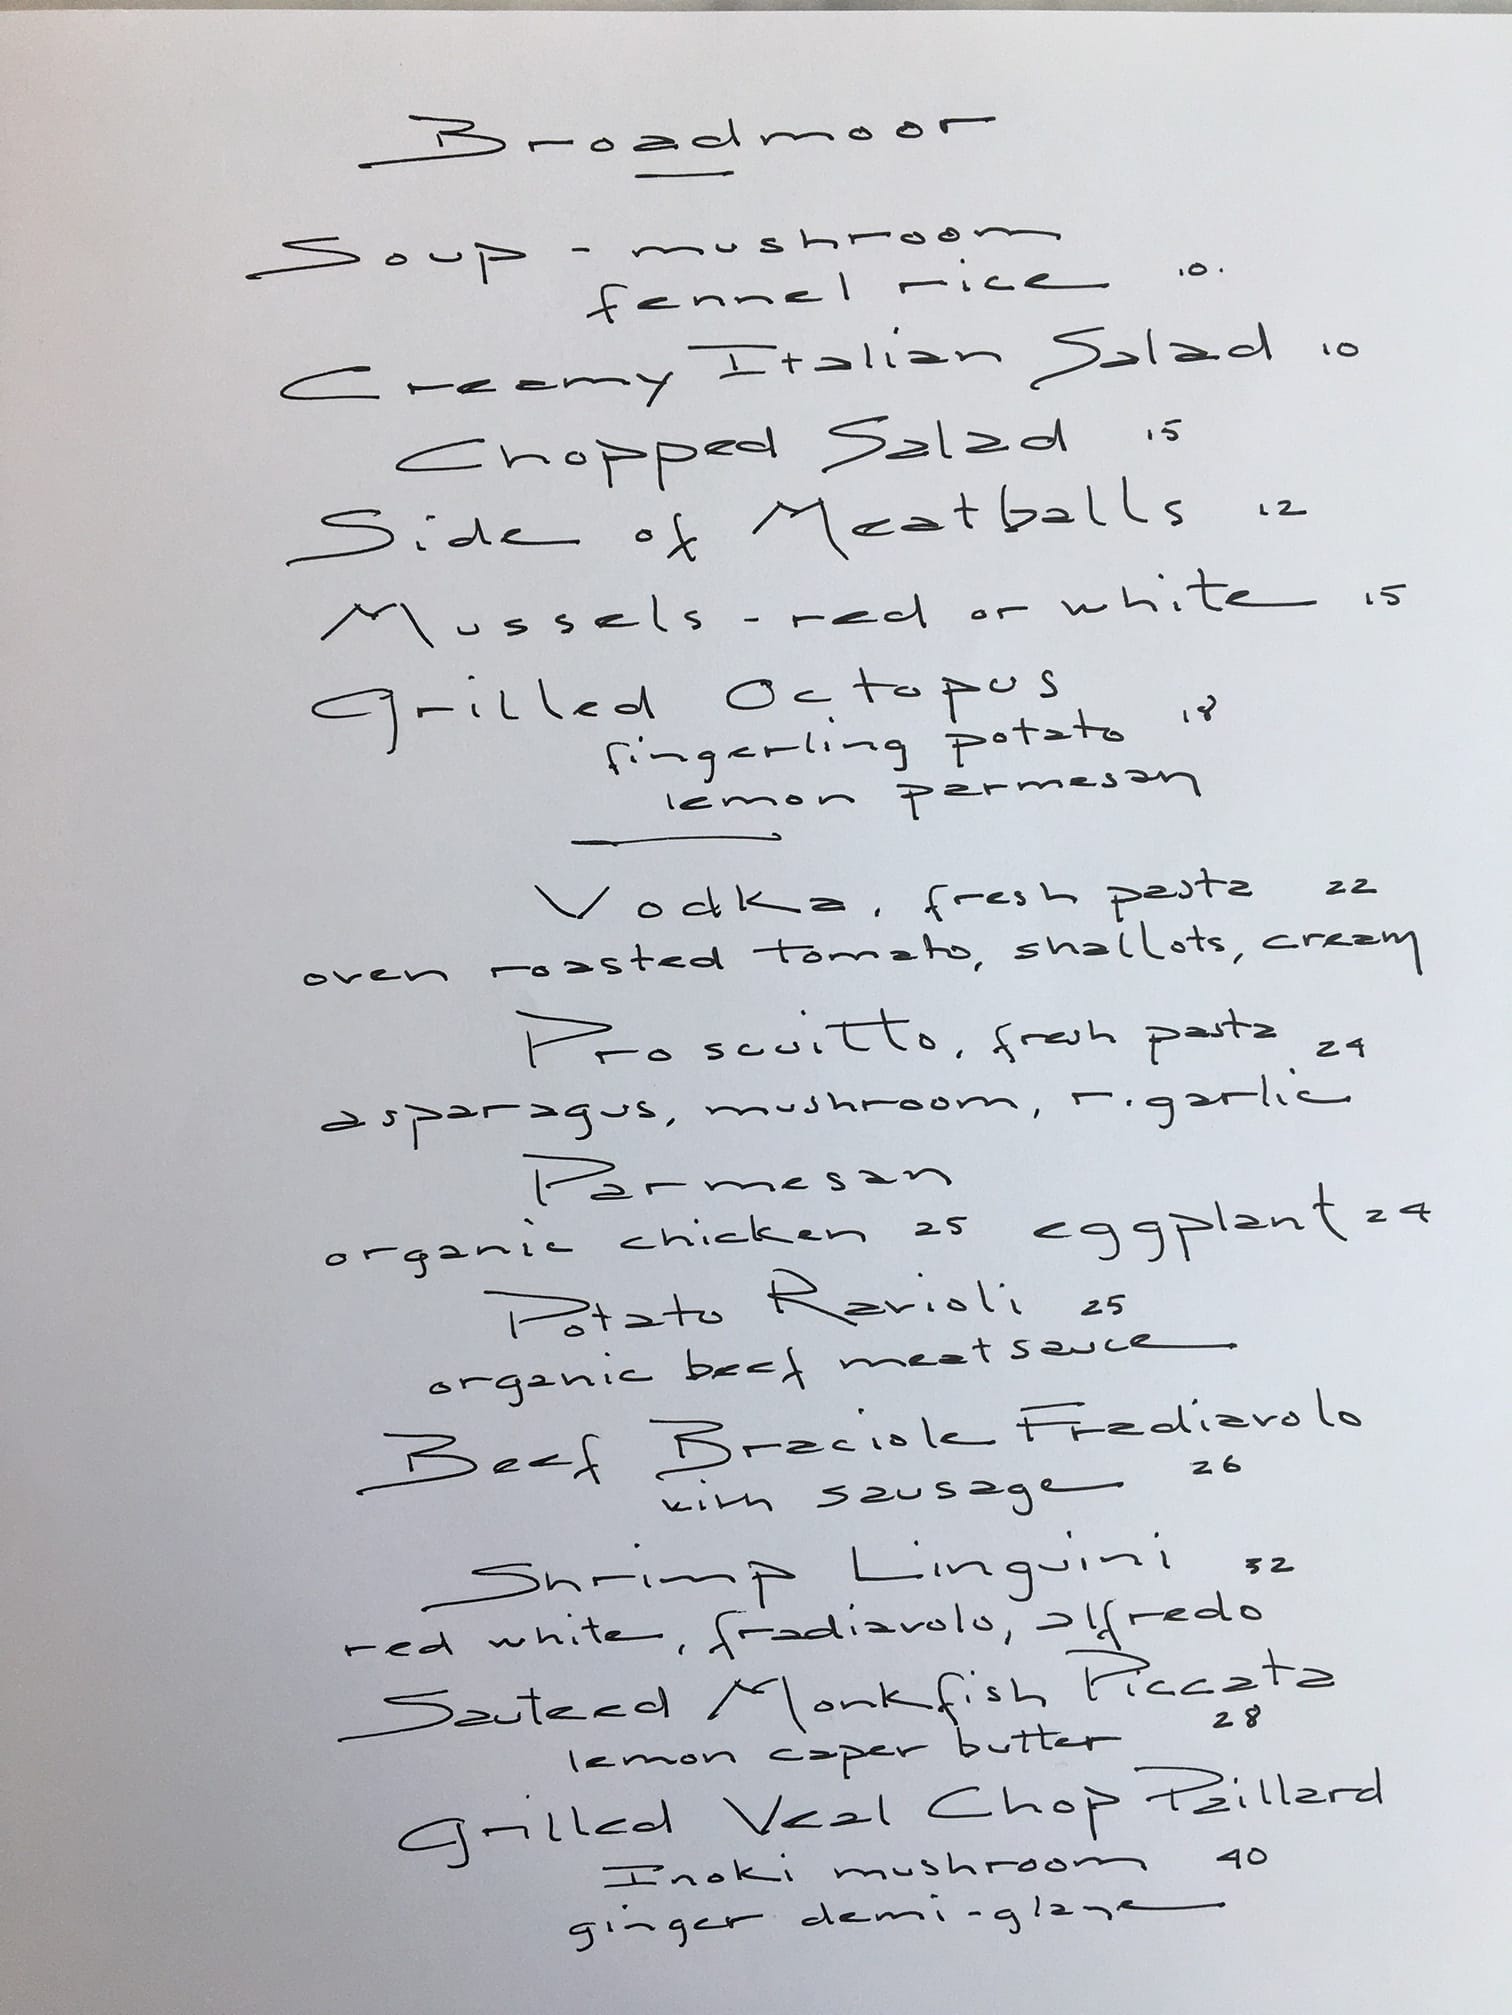 Broadmoor
Soup - mushroom
fennel rice 10.
Creamy Italian Salad 10
Chopped Salad 15
Side of Meatballs 12
Mussels - red or white 15
Grilled Octopus
fingerling potato 18
lemon parmesan
Vodka, fresh pasta 22
oven roasted tomato, shallots, cream
Proscuitto, fresh pasta 24
asparagus, mushroom, r. garlic
Parmesan
organic chicken 25 eggplant 24
Potato Ravioli 25
organic beef meat sauce
Beef Braciole Fradiavolo
with sausage 26
Shrimp Linguini 32
red white, fradiavolo, alfredo
Sauteed Monkfish Piccata
lemon caper butter 28
Grilled Veal Chop Paillard
Inoki mushroom 40
ginger demi-glaze